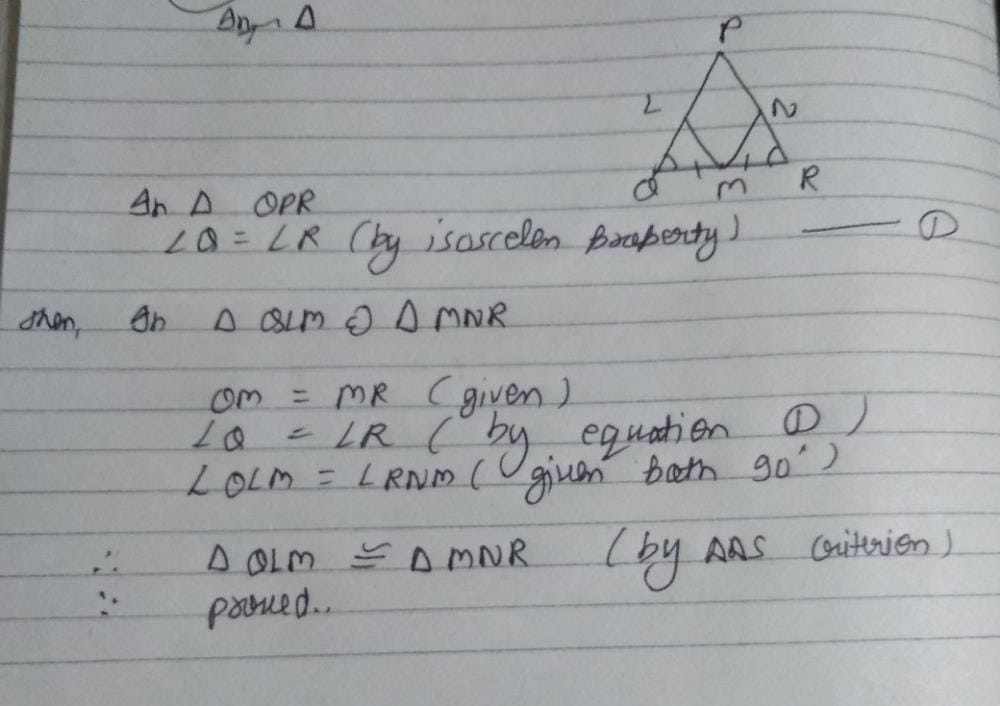 In, Δ
P
L N
Q M R
In Δ QPR
∠Q = ∠R (by isoscelen Property) —— ①
then, In Δ QLM & Δ MNR
QM = MR (given)
∠Q = ∠R ( by equation ① )
∠QLM = ∠RNM ( given both 90° )
∴ Δ QLM ≅ Δ MNR (by AAS Criterion)
∴ proved..